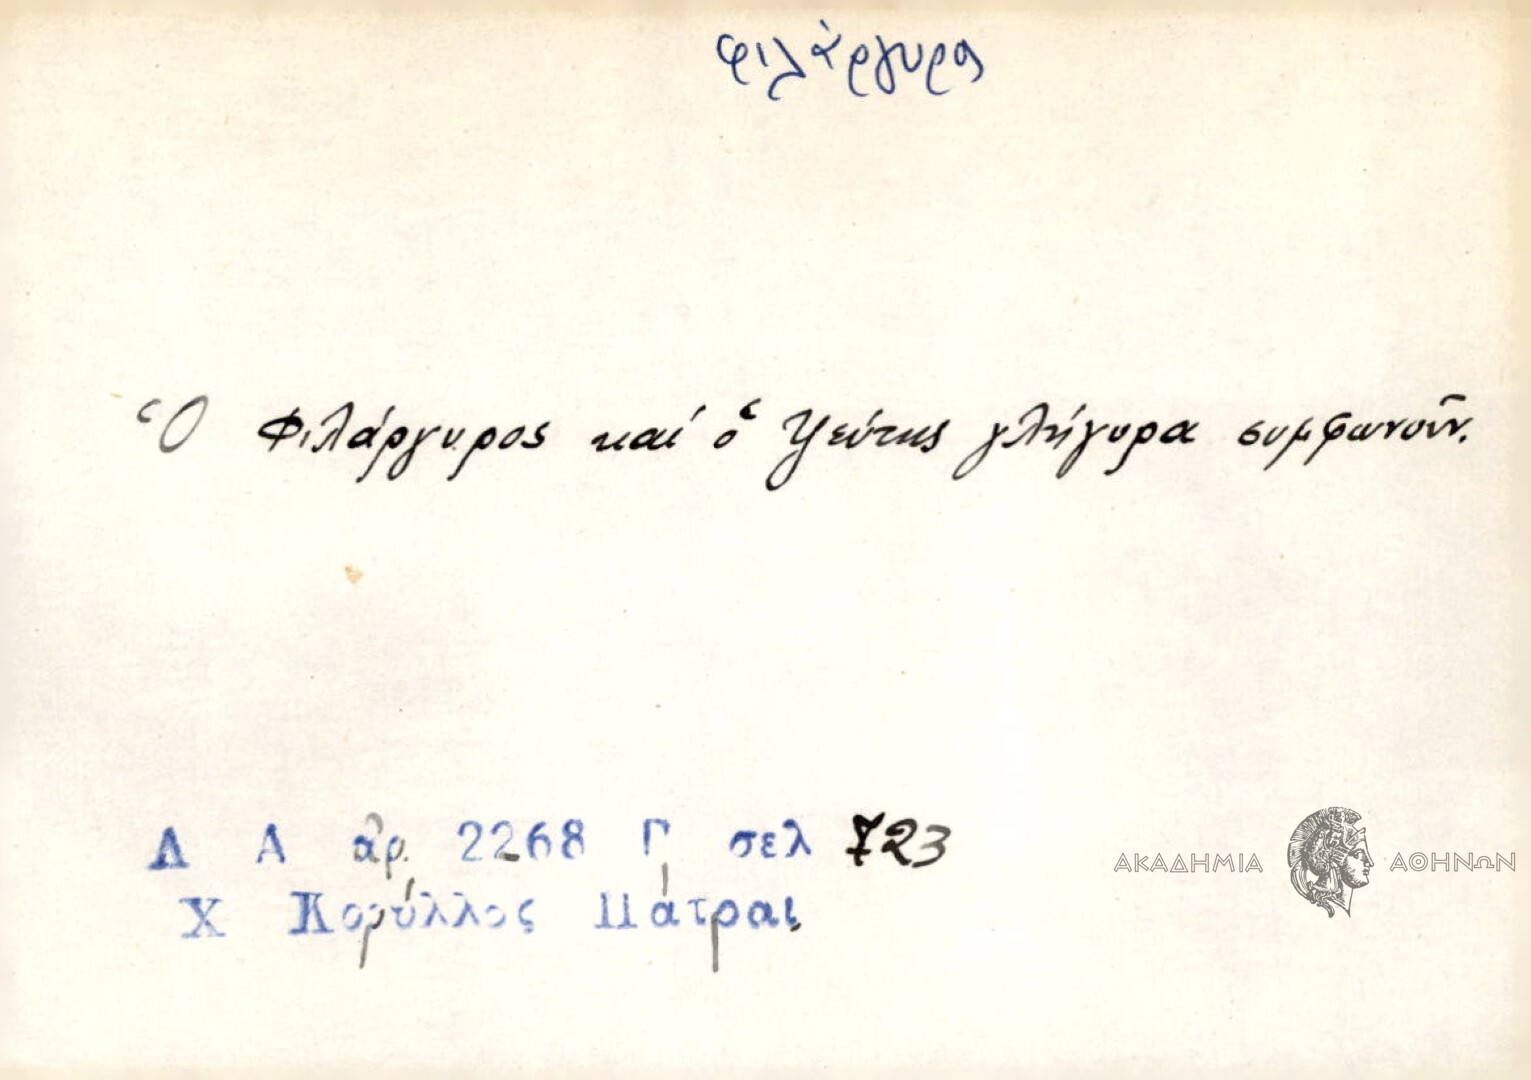 φιλάργυρος
Ὁ Φιλάργυρος καί ὁ Ψεύτης γλήγορα συμφωνοῦν.
Λ Α ἀρ. 2268 Γ σελ 723
Χ Κορύλλος Πάτραι
ΑΚΑΔΗΜΙΑ ΑΘΗΝΩΝ